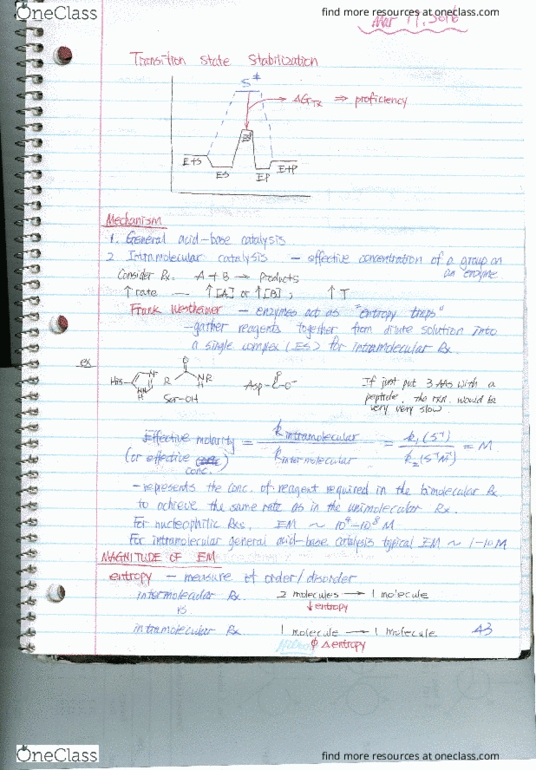 OneClass
find more resources at oneclass.com
Mar 17, 2016
Transition state stabilization
S‡
ΔG_Tx ⇒ proficiency
E+S
ES
EP
E+P
Mechanism
1. General acid-base catalysis
2 Intramolecular catalysis - effective concentration of a group on an enzyme
Consider Rx. A + B → products
↑ rate — ↑[A] or ↑[B] ; ↑ T
Frank Westheimer - enzymes act as "entropy traps"
- gather reagents together from dilute solution into
a single complex (ES) for intramolecular Rx.
ex
His
NH
R
O
NR
Ser-OH
Asp
O
O⁻
If just put 3 AAs with a
peptide, the rxn. would be
very very slow
Effective molarity = k intramolecular / k intermolecular = k₁ (s⁻¹) / k₂ (s⁻¹M⁻¹) = M
(or effective conc.)
- represents the conc. of reagent required in the bimolecular Rx
to achieve the same rate as in the unimolecular Rx.
For nucleophilic Rxs. EM ~ 10⁴-10⁸ M
For intramolecular general acid-base catalysis typical EM ~ 1-10 M
MAGNITUDE OF EM
entropy - measure of order/disorder
intermolecular Rx. 2 molecules → 1 molecule
↓ entropy
vs
intramolecular Rx 1 molecule → 1 molecule
φ Δ entropy
43
OneClass
find more resources at oneclass.com